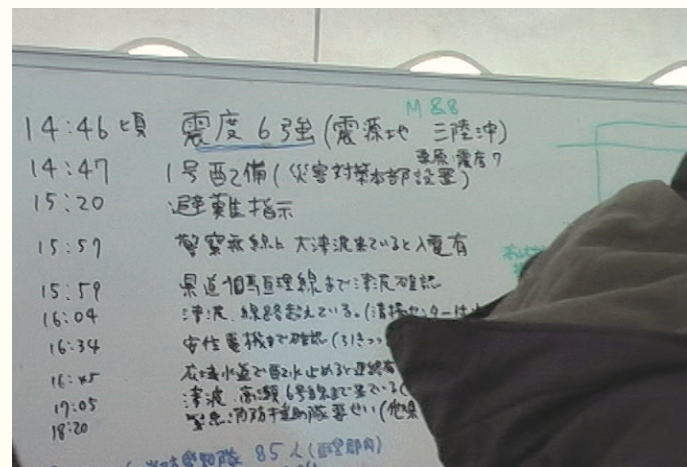 M 8.8
14:46頃 震度6強(震源地 三陸沖)
栗原 震度7
14:47 1号配備(災害対策本部設置)
15:20 避難指示
15:57 警察無線に大津波来ていると入電有
15:59 県道相馬亘理線まで津波確認
16:04 津波、線路超えている。(清掃センターは
16:34 安住電機まで確認(引き
16:45 広域水道で配水止めると連絡有
17:05 津波、高瀬6号線まで来ている(
18:20 緊急消防援助隊要せい(他県
85人(亘理郡内)